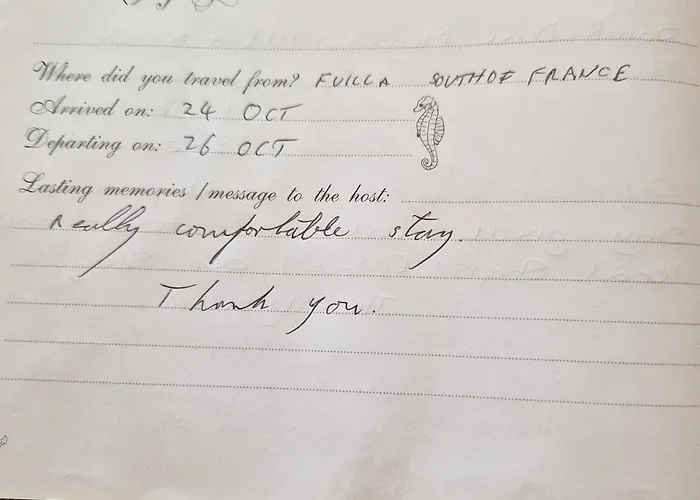 Where did you travel from? FUILLA SOUTH OF FRANCE
Arrived on: 24 OCT
Departing on: 26 OCT
Lasting memories / message to the host:
Really comfortable stay.
Thank you.